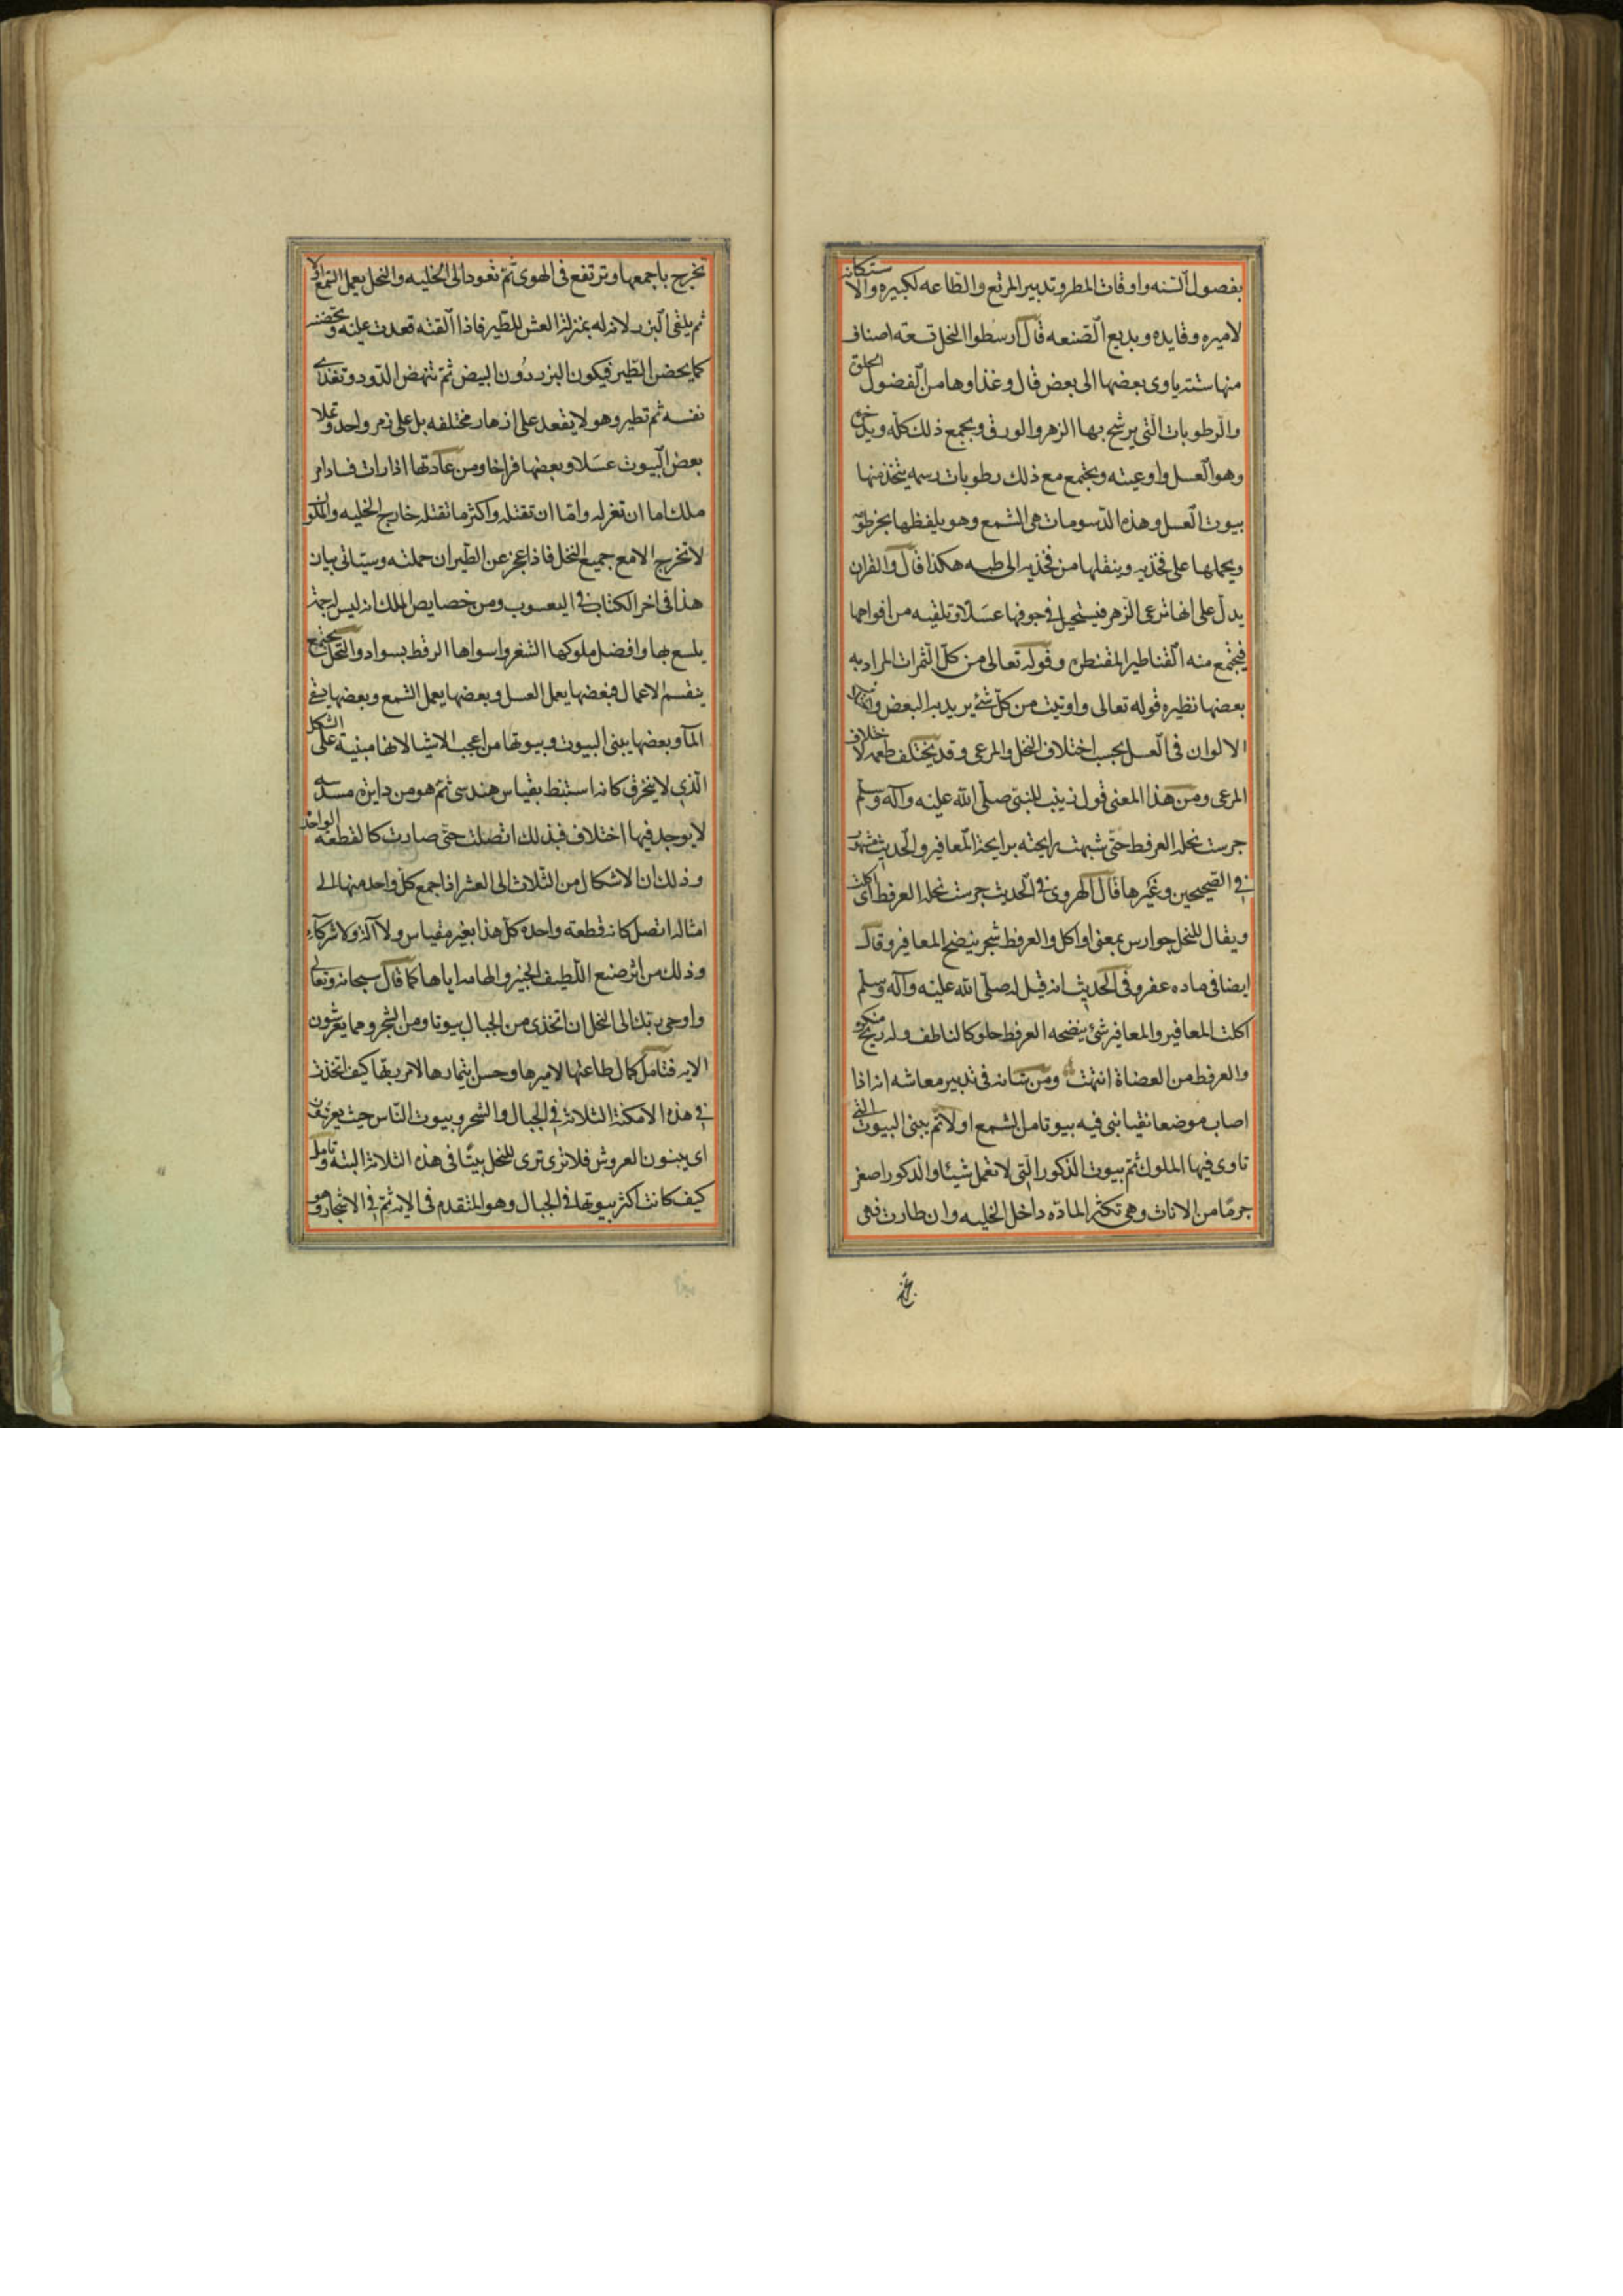 بفصول السنه واوقات المطر وتدبير المرتع والطاعه لكبيره والاستكانه
لاميره وقايده وبديع الصنعه قال ارسطوا النحل تسعة اصناف
منها سته ياوى بعضها الى بعض قال وغذاوها من الفضول الحلوة
والرطوبات التى يرشح بها الزهر والورق ويجمع ذلك كله ويدخره
وهو العسل واوعيته ويجتمع مع ذلك رطوبات دسمه يتخذ منها
بيوت العسل وهذه الدسومات هى الشمع وهو يلفظها بخرطومه
ويحملها على فخذيه وينقلها من فخذيه الى صلبه هكذا قال والقران
يدل على انها ترعى الزهر فيستحيل فى جوفها عسلا وتلقيه من افواهها
فيجتمع منه القناطير المقنطره وقوله تعالى من كل الثمرات المراد به
بعضها نظيره قوله تعالى واوتيت من كل شئ يريد به البعض واختلاف
الالوان فى العسل بحسب اختلاف النحل والمرعى وقد يختلف طعمه لاختلاف
المرعى ومن هذا المعنى قول زينب للنبى صلى الله عليه وآله وسلم
جرست نحله العرفط حتى شبهت رايحته برايحة المغافير والحديث مشهور
فى الصحيحين وغيرها قال الهروى فى الحديث جرست نحله العرفط اى اكلت
ويقال للنحل جوارس بمعنى اواكل والعرفط شجر ينضح المغافير وقال
ايضا فى ماده عفر وفى الحديث انه قيل له صلى الله عليه وآله وسلم
اكلت المغافير والمغافير شئ ينضحه العرفط حلو كالناطف وله ريح منكره
والعرفط من العضاة انتهت ومن شانه فى تدبير معاشه انه اذا
اصاب موضعا نقيا بنى فيه بيوتا من الشمع اولا ثم يبنى البيوت التى
تاوى فيها الملوك ثم بيوت الذكور التى لا تعمل شيئا والذكور اصغر
جرمًا من الاناث وهى تكثر المادّه داخل الخليه وان طارت فهى
تخرج باجمعها وترتفع فى الهوى ثم تعود الى الخليه والنحل يعمل الشمع اولا
ثم يلقى البزر لانه له بمنزلة العش للطير فاذا القته قعدت عليه وتحضنه
كما يحضن الطير فيكون البزر دون البيض ثم تنهض الدود وتغذى
نفسه ثم تطير وهو لا يقعد على ازهار مختلفه بل على زهر واحد وتملا
بعض البيوت عسلا وبعضها فراخا ومن عادتها اذا رات فسادا من
ملك اما ان تعزله واما ان تقتله واكثر ما تقتله خارج الخليه والملوك
لا تخرج الا مع جميع النحل فاذا عجز عن الطيران حملته وسيتانى بيان
هذا فى اخر الكتاب فى اليعسوب ومن خصايص الملك انه ليس له حمة
يلسع بها وافضل ملوكها الشقر واسواها الرقط بسواد والنحل تجتمع
يتقسم الاعمال فبعضها يعمل العسل وبعضها يعمل الشمع وبعضها يسقى
المآ وبعضها يبنى البيوت وبيوتها من اعجب الاشيا لانها مبنية على الشكل
الذى لا ينخرق كانه استنبط بقياس هندسى ثم هو من دايره مسدسه
لا يوجد فيها اختلاف فبذلك اتصلت حتى صارت كالقطعه الواحده
وذلك ان الاشكال من الثلاث الى العشر اذا جمع كل واحد منها الى
امثاله اتصل كانه قطعة واحده كل هذا بغير مقياس ولا آلة ولا شركآء
وذلك من اثر صنع اللطيف الخبير والهامه اياها كما قال سبحانه وتعالى
واوحى ربك الى النحل ان اتخذى من الجبال بيوتا ومن الشجر ومما يعرشون
الايه فتامل كمال طاعتها لاميرها وحسن ايتمارها لامر ربها كيف اتخذت
فى هذه الامكنة الثلاثة فى الجبال والشجر وبيوت الناس حيث يعرشون
اى يبنون العروش فلا ترى ترى للنحل بيتًا فى هذه الثلاثة البته وتامل
كيف كانت اكثر بيوتها فى الجبال وهو المتقدم فى الايه ثم فى الاشجار وهو